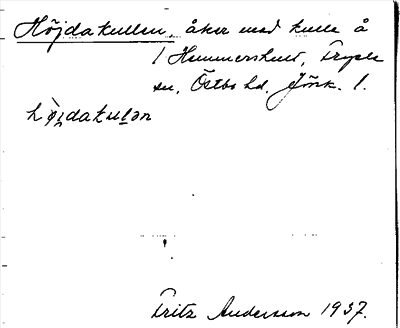 Höjdakullen, åker med kulle å
/ Hammershult, Tryde
sn, Östbo hd, Jönk. l.
hø̀jdakulən
Fritz Andersson 1937.